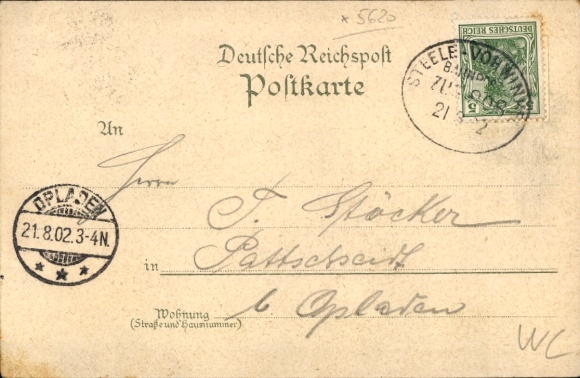 * 5620
Deutsche Reichspost
Postkarte
STEELE-VOHWINKEL
BAHNPOST
ZUG
21 8 2
DEUTSCHES REICH
5
An
Herrn
OPLADEN
21.8.02.3-4N.
T. Stöcker
in Pattscheidt
b. Opladen
Wohnung
(Straße und Hausnummer)
WC